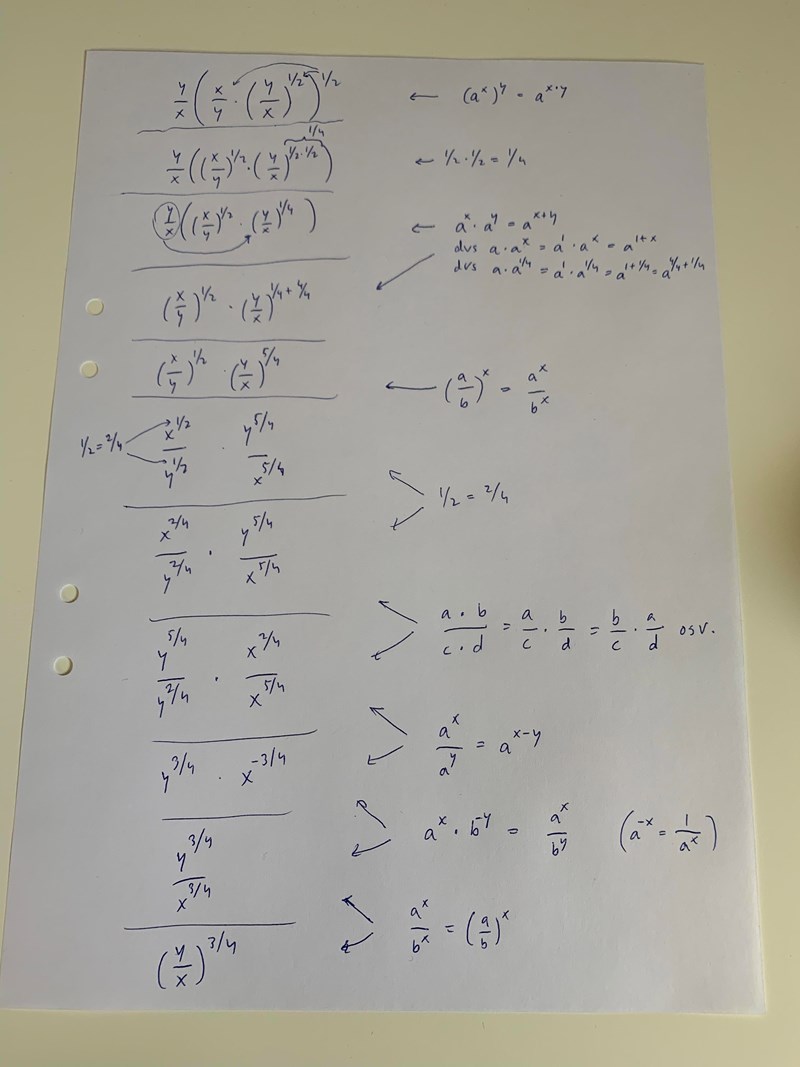 y/x (x/y · (y/x)^1/2)^1/2 ← (a^x)^y = a^x·y
1/4
y/x ((x/y)^1/2 · (y/x)^1/2·1/2) ← 1/2 · 1/2 = 1/4
y/x ((x/y)^1/2 · (y/x)^1/4) ← a^x · a^y = a^x+y
dvs a · a^x = a^1 · a^x = a^1+x
dvs a · a^1/4 = a^1 · a^1/4 = a^1+1/4 = a^4/4+1/4
(x/y)^1/2 · (y/x)^1/4+4/4
(x/y)^1/2 · (y/x)^5/4 ← (a/b)^x = a^x/b^x
1/2 = 2/4 x^1/2/y^1/2 · y^5/4/x^5/4
1/2 = 2/4
x^2/4/y^2/4 · y^5/4/x^5/4
a · b/c · d = a/c · b/d = b/c · a/d osv.
y^5/4/y^2/4 · x^2/4/x^5/4
a^x/a^y = a^x-y
y^3/4 · x^-3/4
a^x · b^-y = a^x/b^y (a^-x = 1/a^x)
y^3/4/x^3/4
a^x/b^x = (a/b)^x
(y/x)^3/4